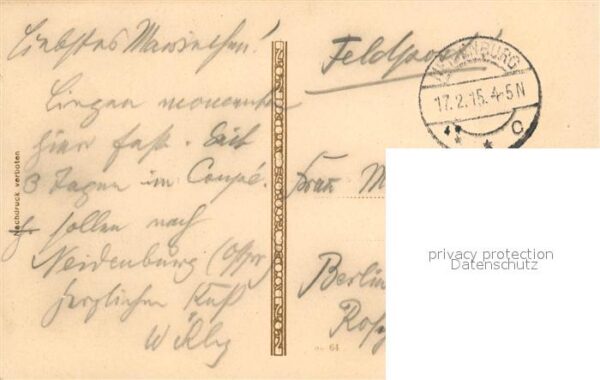 Liebstes Mariechen!
Liegen momentan
hier fest. Seit
3 Tagen im Coupé.
sollen nach
Neidenburg (Ostpr)
herzlichen Kuß
Willy
Nachdruck verboten
Feldpost
17.2.15. 4-5N
* * C
Frau M
Berlin
privacy protection
Datenschutz
64